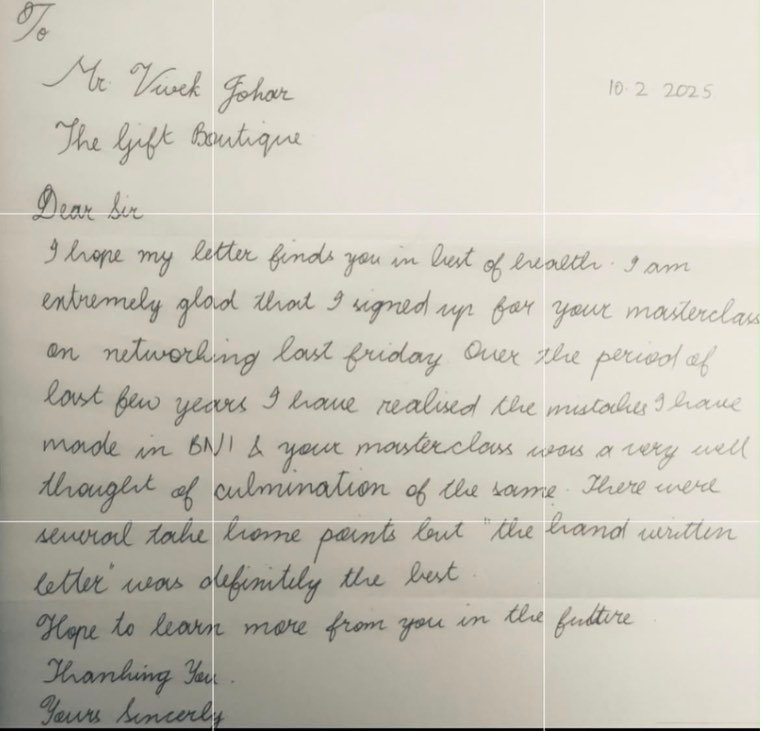 To
Mr. Vivek Johar
10.2 2025
The Gift Boutique
Dear Sir
I hope my letter finds you in best of health. I am
extremely glad that I signed up for your masterclass
on networking last friday. Over the period of
last few years I have realised the mistakes I have
made in BNI & your masterclass was a very well
thought of culmination of the same. There were
several take home points but "the hand written
letter" was definitely the best.
Hope to learn more from you in the future
Thanking You.
Yours Sincerly